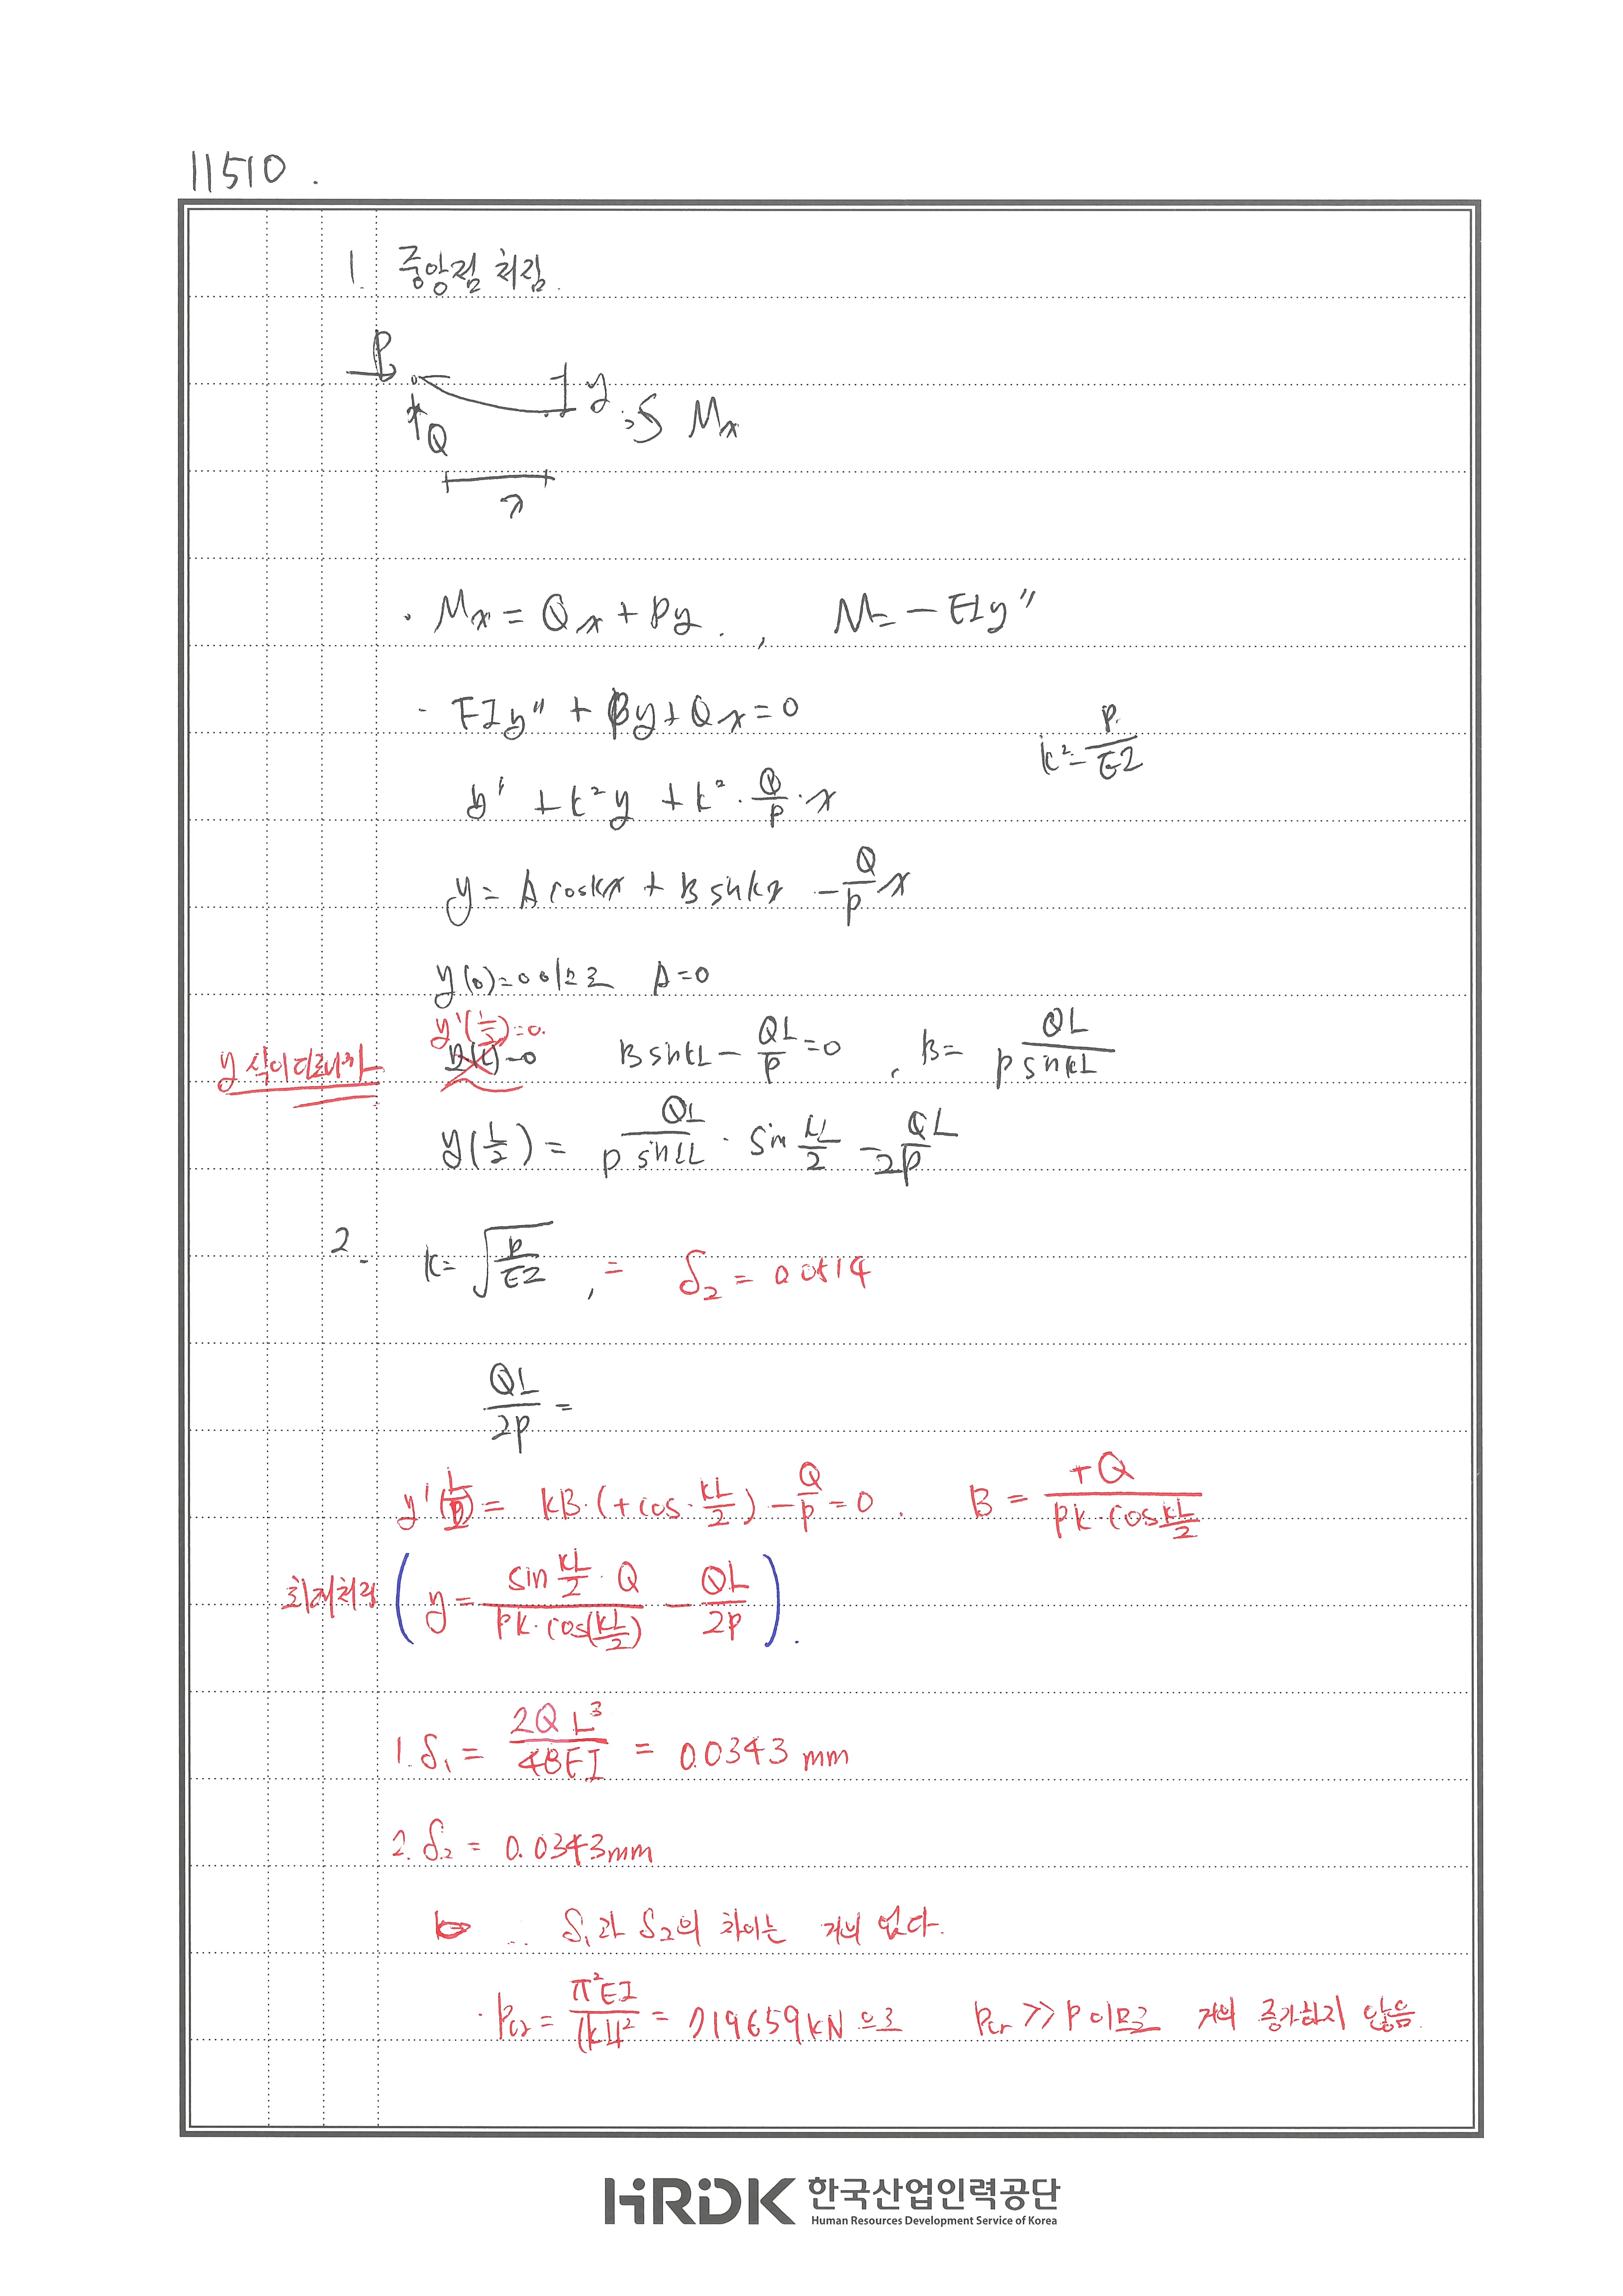 11510.
1. 중앙점 처짐.
P
y
Mx
Q
x
· Mx = Qx + Py. , M = -EIy"
- EIy" + Py + Qx = 0
k² = P/EI
y" + k²y + k²·Q/P·x
y = A coskx + B sinkx - Q/P x
y(0)=0이므로 A=0
y'(L/2)=0.
y 식이 다르니까 y(L)=0 BsinkL - QL/P = 0, B = QL/(P sinkL)
y(L/2) = QL/(P sinkL) · sin kL/2 - QL/2P
2. k = √(P/EI), = δ₂ = 0.0514
QL/2P =
y'(L/2) = kB·(+cos·kL/2) - Q/P = 0. B = +Q/(Pk·cos kL/2)
최대처짐 (y = sin kL/2 · Q/(Pk·cos(kL/2)) - QL/2P).
1. δ₁ = 2QL³/48EI = 0.0343 mm
2. δ₂ = 0.0343mm
∴ δ₁과 δ₂의 차이는 거의 없다.
· Pcr = π²EI/(kL)² = 719659kN 으로 Pcr >> P 이므로 거의 증가하지 않음.
HRDK 한국산업인력공단
Human Resources Development Service of Korea